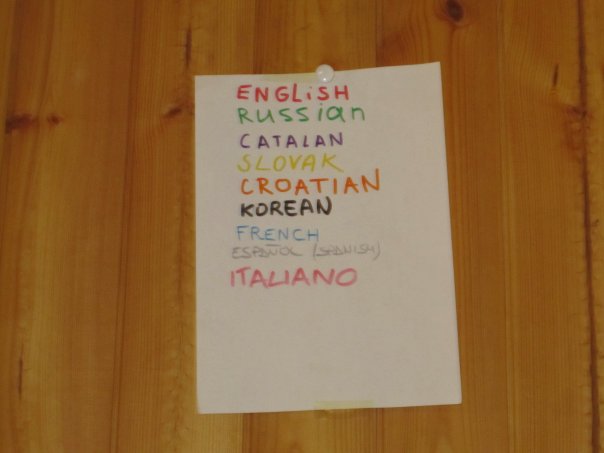 ENGLiSH
RUSSian
CATALAN
SLOVAK
CROATIAN
KOREAN
FRENCH
ESPAÑOL (SPANISH)
ITALIANO